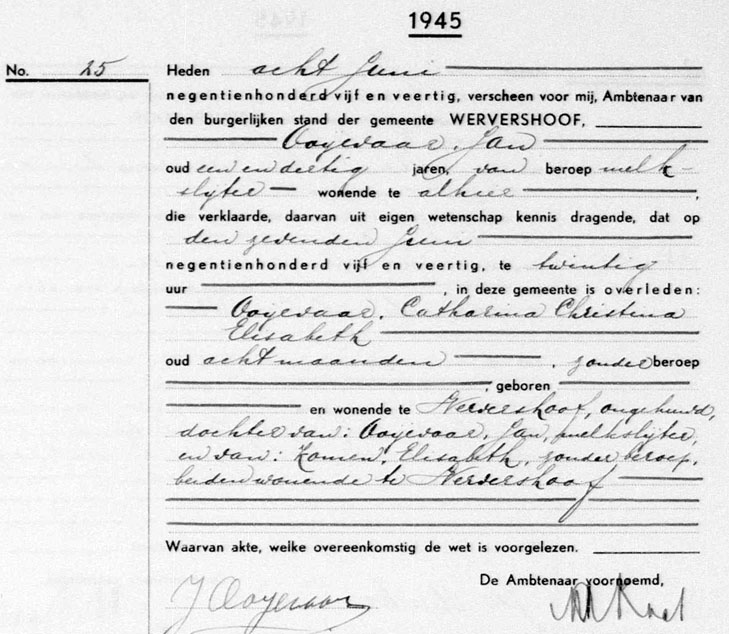 1945
No. 25
Heden acht Juni
negentienhonderd vijf en veertig, verscheen voor mij, Ambtenaar van
den burgerlijken stand der gemeente WERVERSHOOF,
Ooijevaar, Jan
oud een en dertig jaren, van beroep melk-
slijter wonende te alhier,
die verklaarde, daarvan uit eigen wetenschap kennis dragende, dat op
den zevenden Juni
negentienhonderd vijf en veertig, te twintig
uur, in deze gemeente is overleden:
Ooijevaar, Catharina Christina
Elisabeth
oud acht maanden, zonder beroep
, geboren
en wonende te Wervershoof, ongehuwd,
dochter van: Ooijevaar, Jan, melkslijter,
en van: Komen, Elisabeth, zonder beroep,
beiden wonende te Wervershoof
Waarvan akte, welke overeenkomstig de wet is voorgelezen.
De Ambtenaar voornoemd,
J Ooijevaar